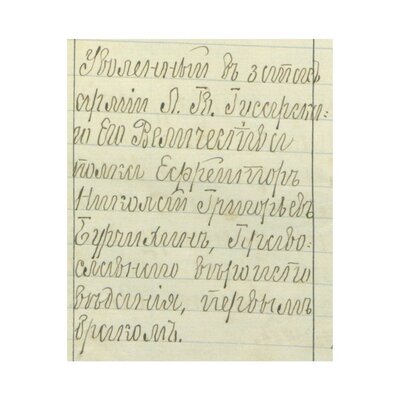 Уволенный въ запасъ
арміи Л. Гв. Гусарска-
го Его Величества
полка Ефрейторъ
Николай Григорьевъ
Бурчихинъ, Право-
славнаго вѣроиспо
вѣданія, первымъ
бракомъ.